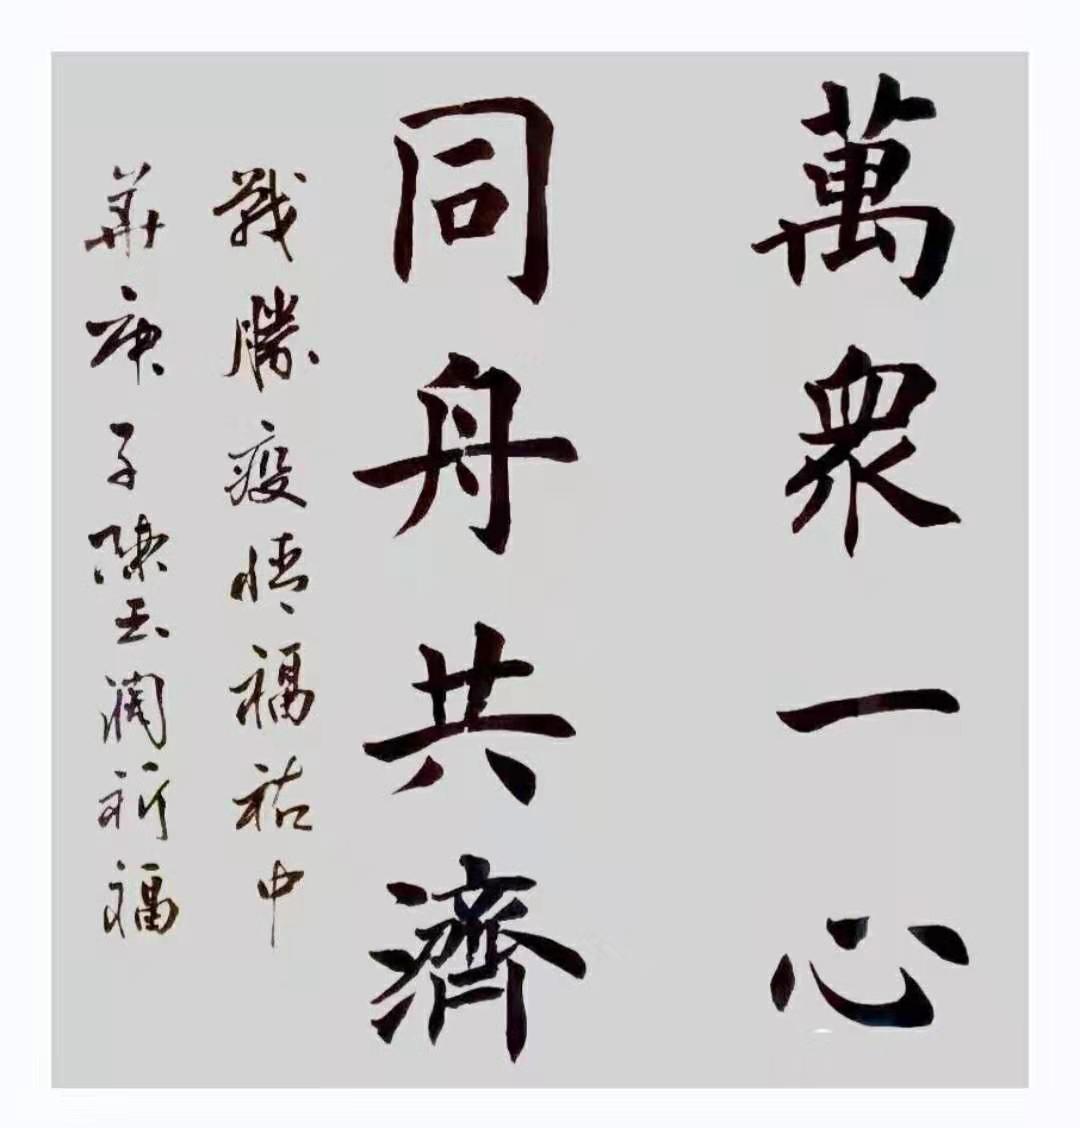 萬眾一心
同舟共濟
戰勝疫情福祐中
華庚子陳玉潤祈福